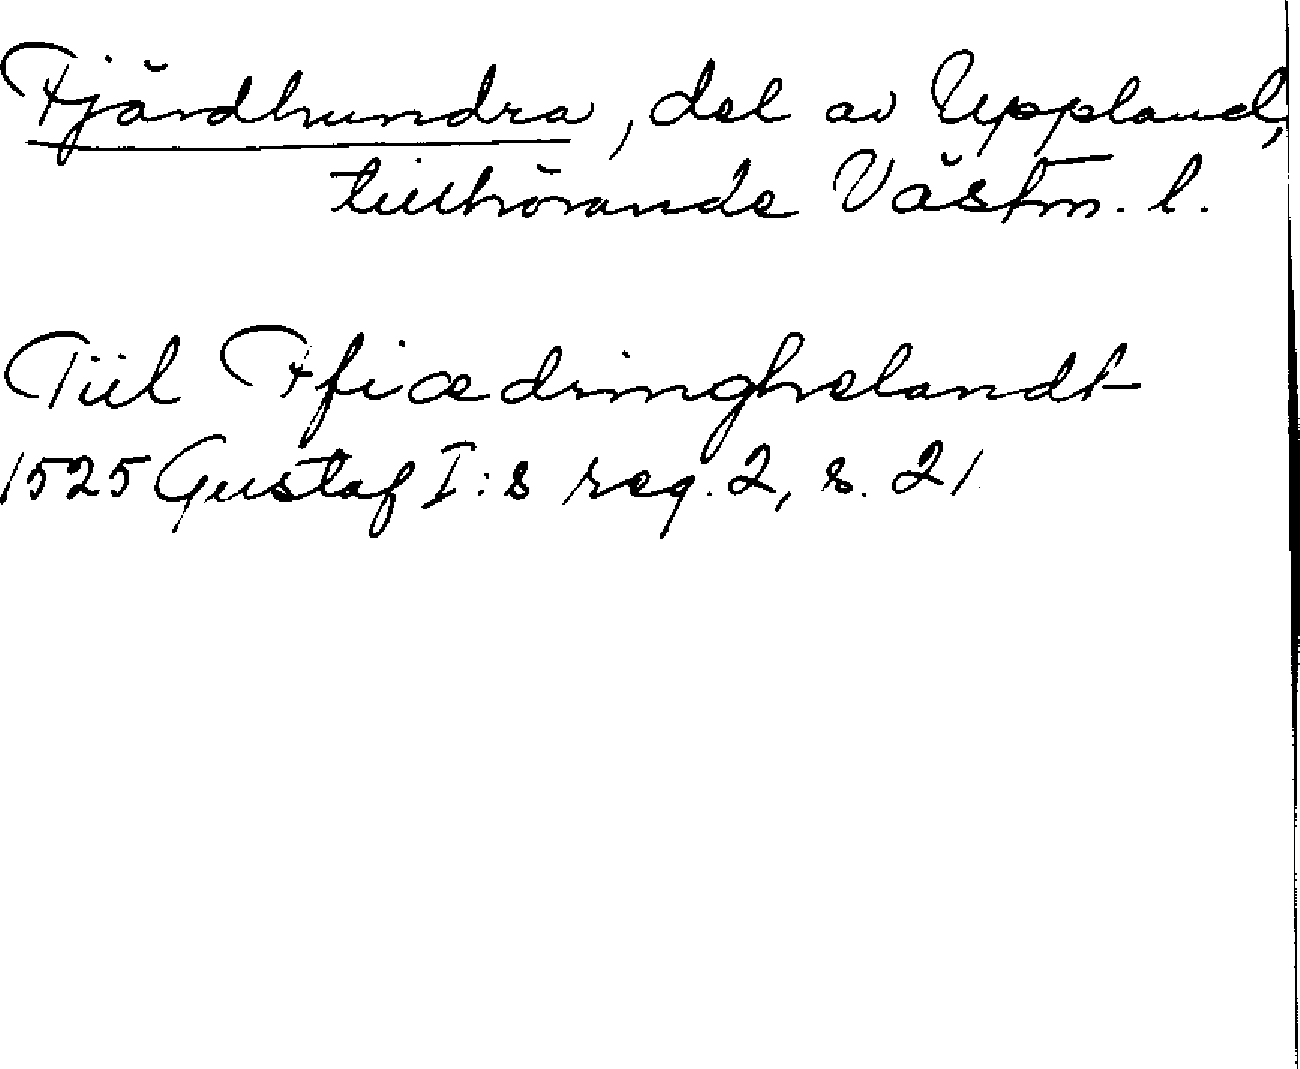 Fjärdhundra, del av Uppland,
tillhörande Västm. l.
Tiil Ffiædringhelandt
1525 Gustaf I:s reg. 2, s. 21